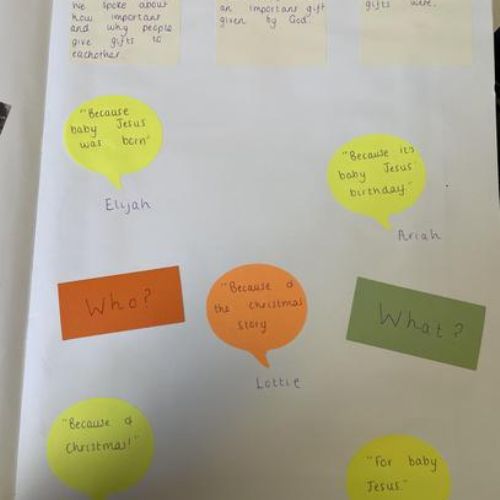 We spoke about
how important
and why people
give gifts to
eachother.
an important gift
given by God.
gifts were.
"Because
baby Jesus
was born"
Elijah
"Because its
baby Jesus'
birthday."
Ariah
Who?
"Because of
the christmas
story
Lottie
What?
"Because of
Christmas!"
"For baby
Jesus."